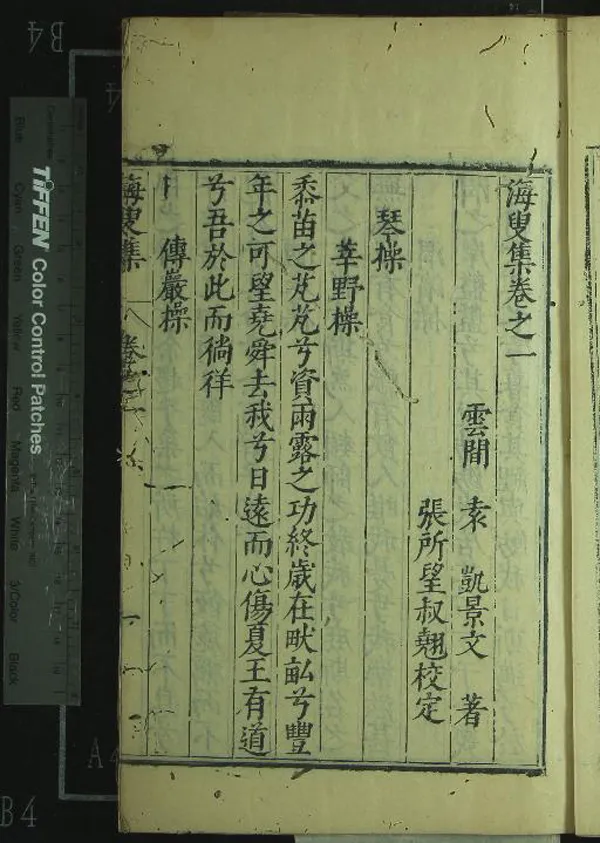 海叟集卷之一
雲間 袁 凱景文 著
張所望叔翹校定
琴操
莘野操
黍苗之芃芃兮資雨露之功終歲在畎畝兮豐
年之可望堯舜去我兮日遠而心傷夏王有道
兮吾於此而徜徉
傅巖操
海叟集 卷
B4
4
A4
B4
TIFFEN Color Control Patches
Blue
Cyan
Green
Yellow
Red
Magenta
White
3/Color
Black